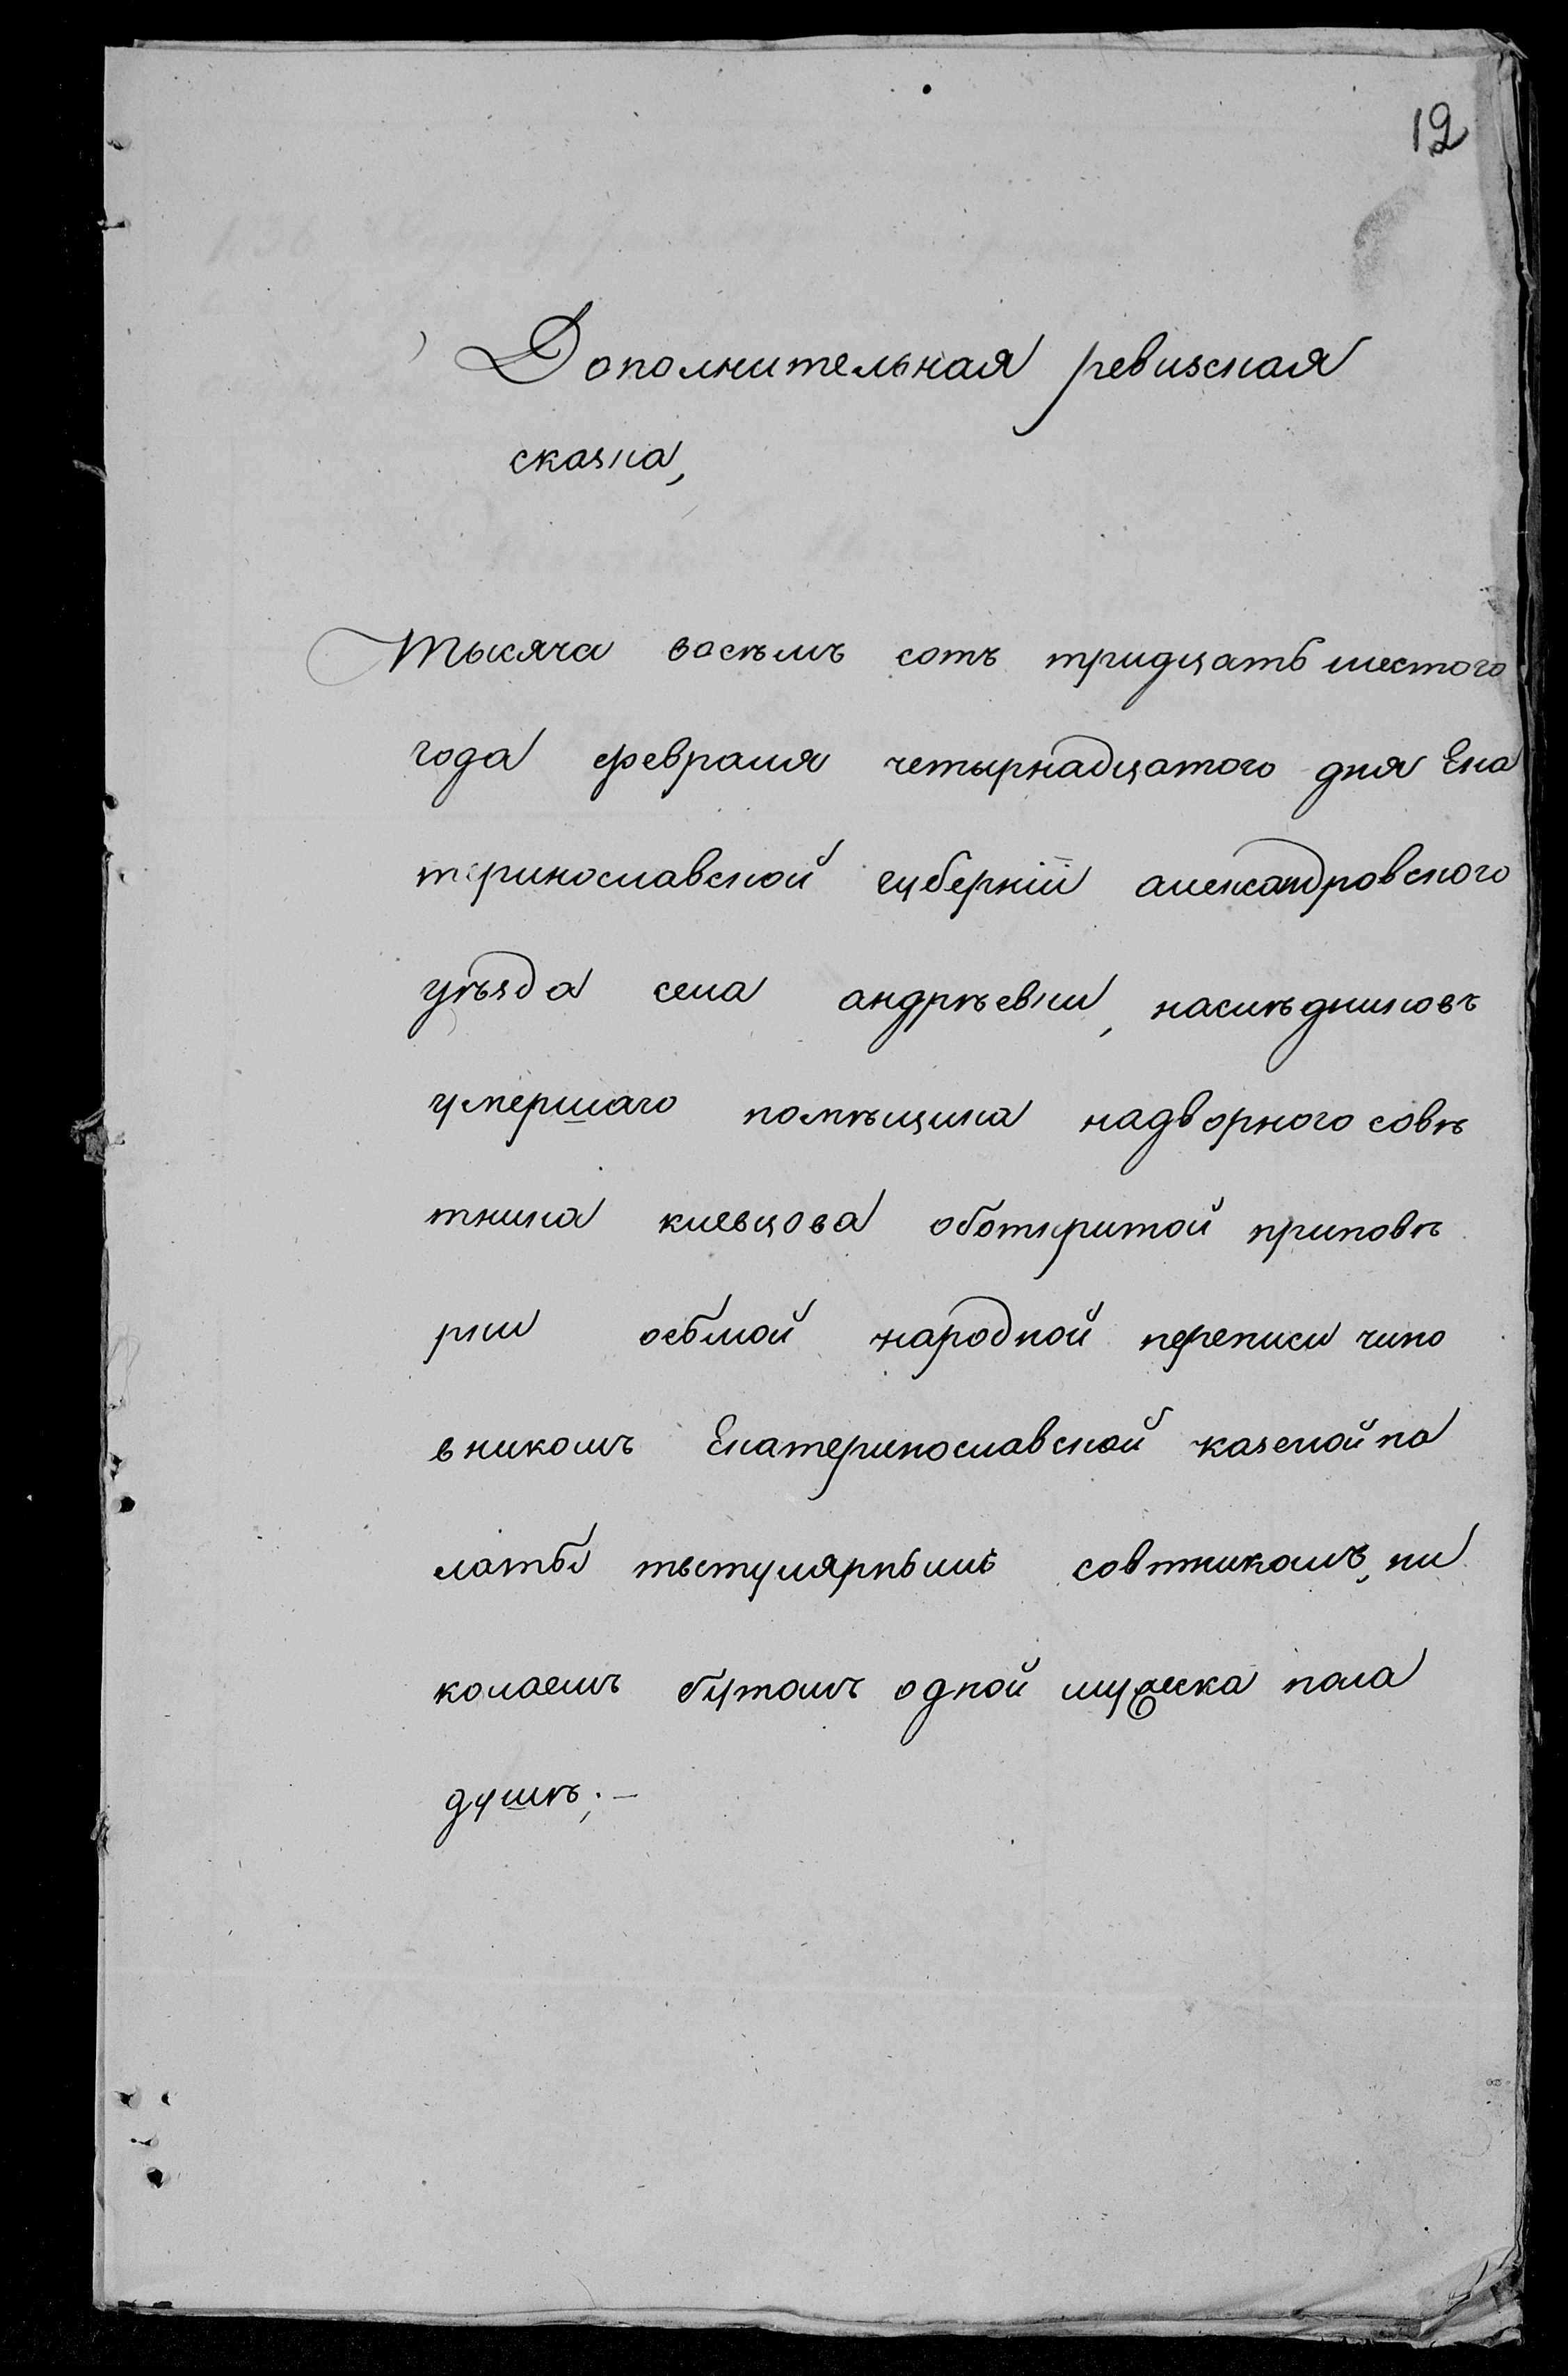 12
Дополнительная ревизская
сказка,
Тысяча восѣмъ сотъ тридцать шестого
года февраля четырнадцатого дня Ека
теринославской губерніи александровского
уѣзда села андрѣевки, наслѣдниковъ
умершаго помѣщика надворного совѣ
тника киевцова оботкритой приповѣ
рки осьмой народной переписи чино
вникомъ Екатеринославской казеной па
латы тытулярнымъ совтникомъ, ни
колаемъ бутомъ одной мужеска пола
душѣ;—